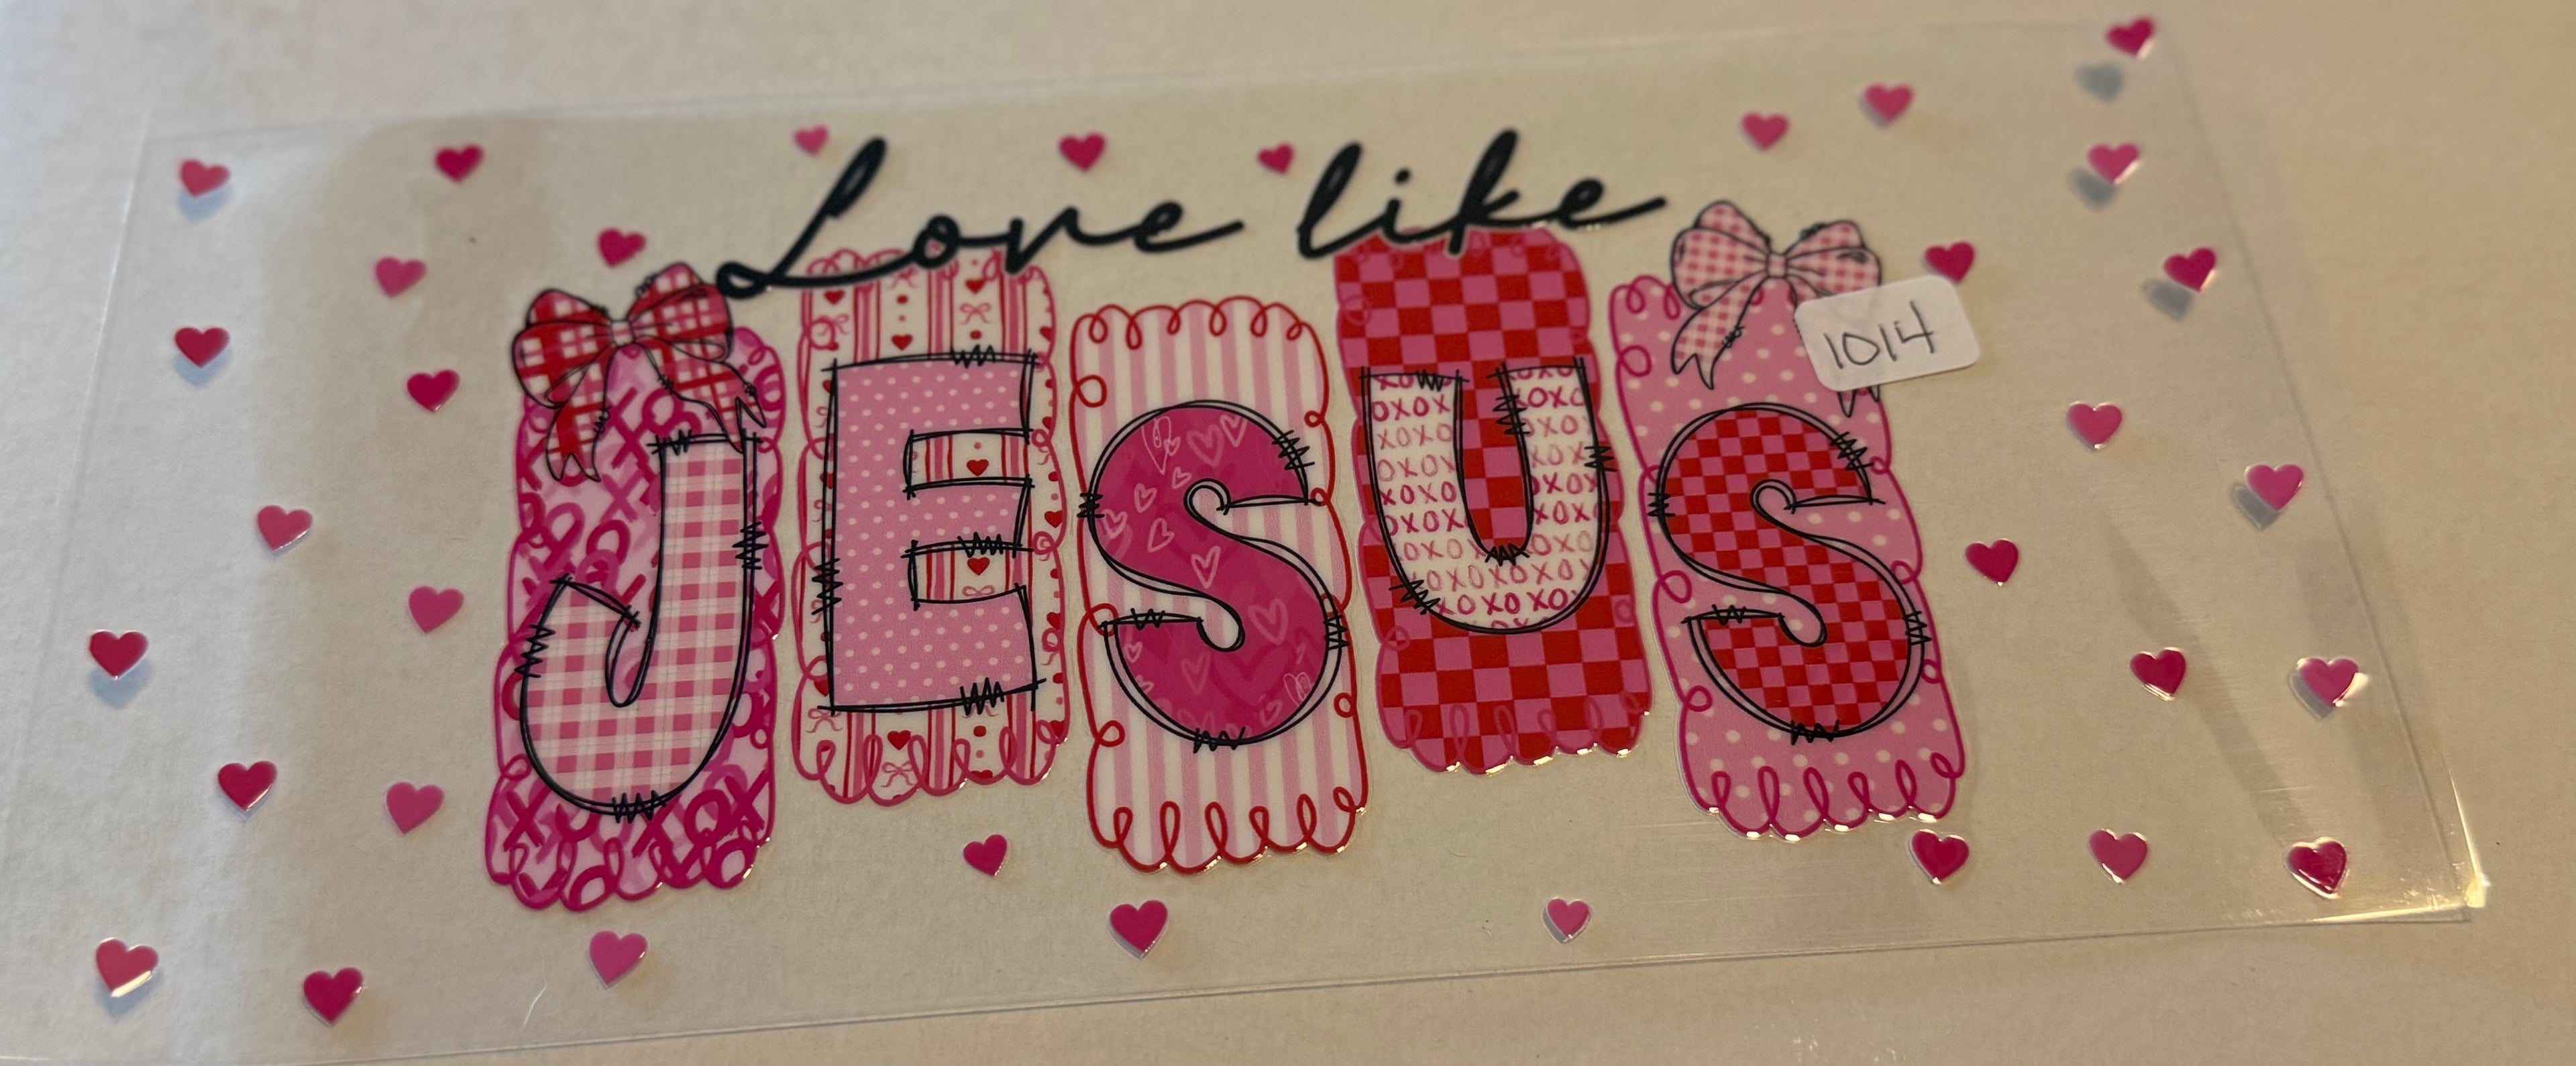 Love like
JESUS
1014